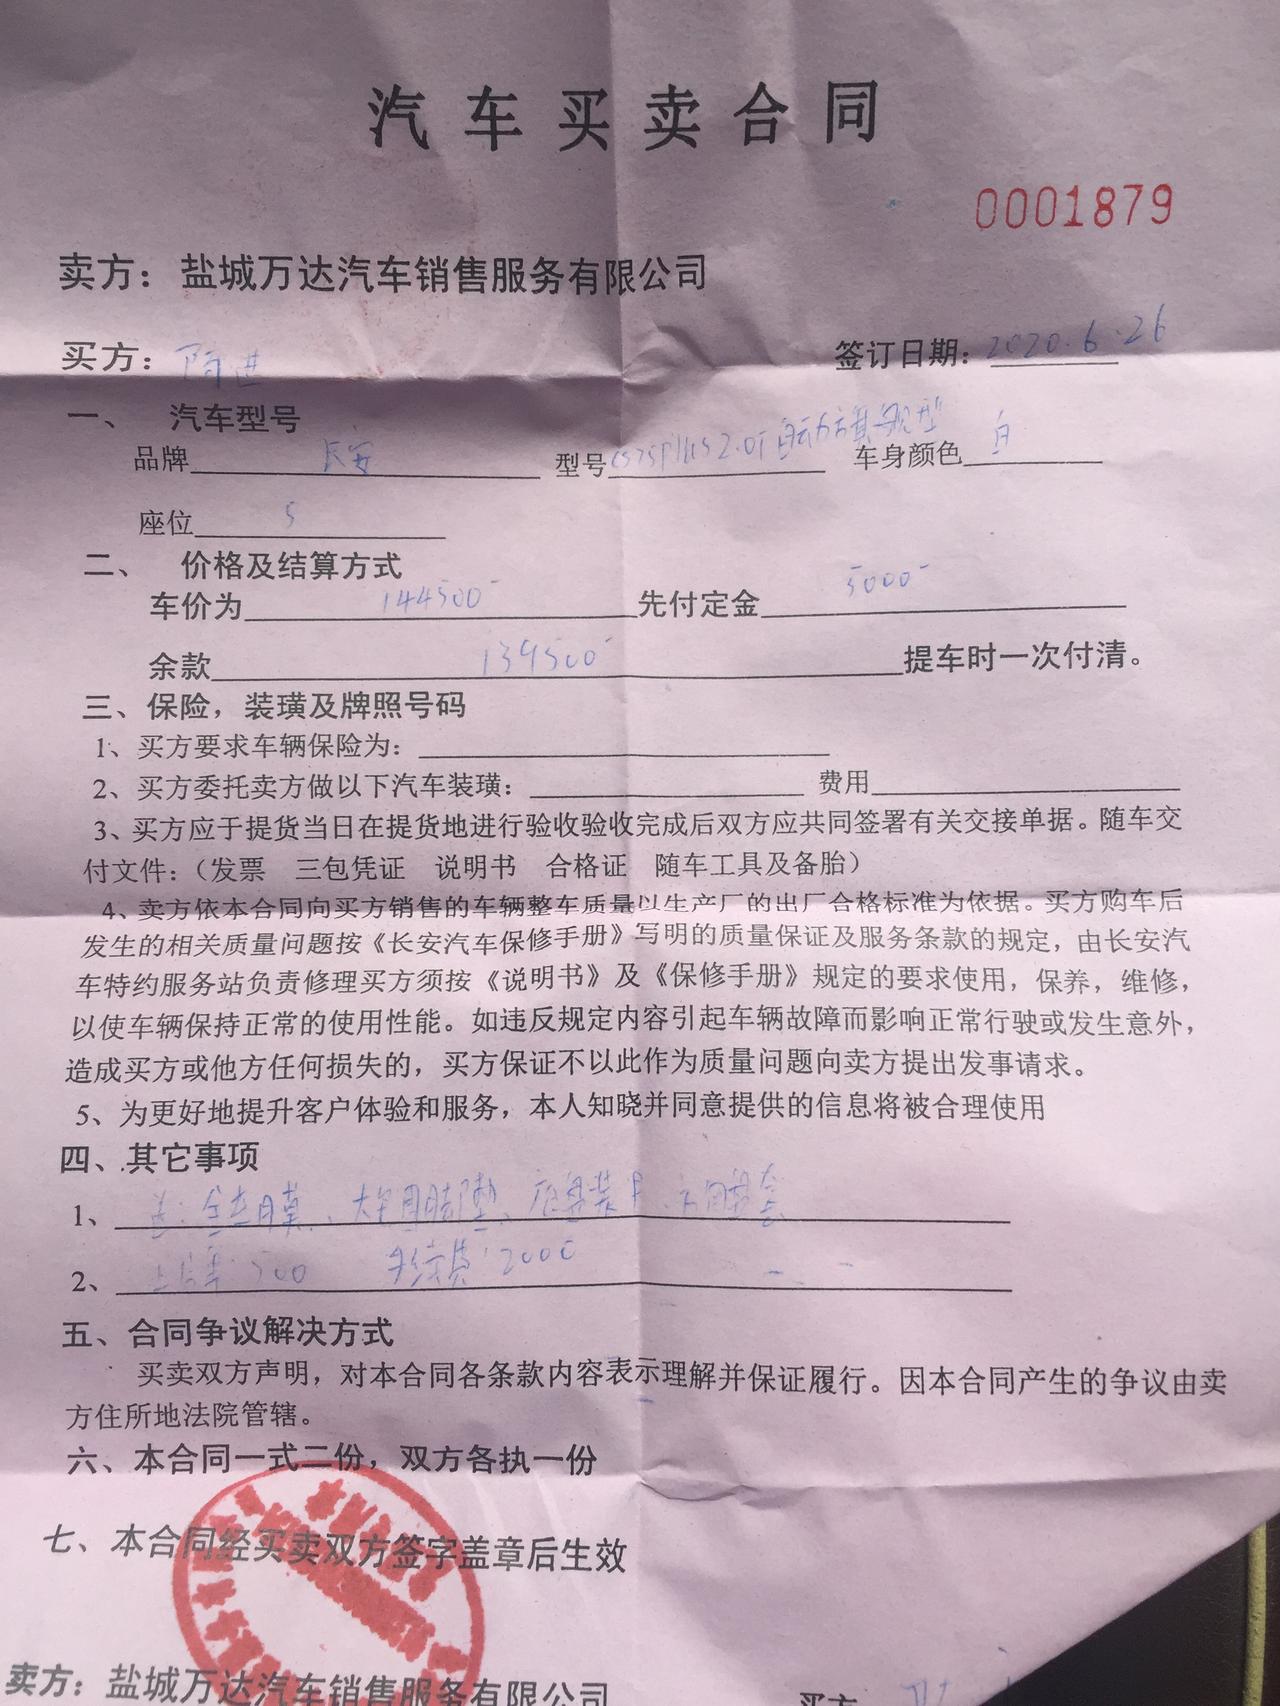 汽车买卖合同
0001879
卖方：盐城万达汽车销售服务有限公司
买方： 签订日期：2020.6.26
一、 汽车型号
品牌 长安 型号 CS75plus 2.0T自动旗舰型 车身颜色 白
座位 5
二、 价格及结算方式
车价为 144500 先付定金 5000
余款 139500 提车时一次付清。
三、保险，装璜及牌照号码
1、买方要求车辆保险为：
2、买方委托卖方做以下汽车装璜： 费用
3、买方应于提货当日在提货地进行验收验收完成后双方应共同签署有关交接单据。随车交
付文件：（发票 三包凭证 说明书 合格证 随车工具及备胎）
4、卖方依本合同向买方销售的车辆整车质量以生产厂的出厂合格标准为依据。买方购车后
发生的相关质量问题按《长安汽车保修手册》写明的质量保证及服务条款的规定，由长安汽
车特约服务站负责修理买方须按《说明书》及《保修手册》规定的要求使用，保养，维修，
以使车辆保持正常的使用性能。如违反规定内容引起车辆故障而影响正常行驶或发生意外，
造成买方或他方任何损失的，买方保证不以此作为质量问题向卖方提出发事请求。
5、为更好地提升客户体验和服务，本人知晓并同意提供的信息将被合理使用
四、.其它事项
1、送：全车膜、大包围脚垫、底盘装甲、方向盘套
2、 500 手续费：2000
五、合同争议解决方式
买卖双方声明，对本合同各条款内容表示理解并保证履行。因本合同产生的争议由卖
方住所地法院管辖。
六、本合同一式二份，双方各执一份
七、本合同经买卖双方签字盖章后生效
卖方：盐城万达汽车销售服务有限公司 买方